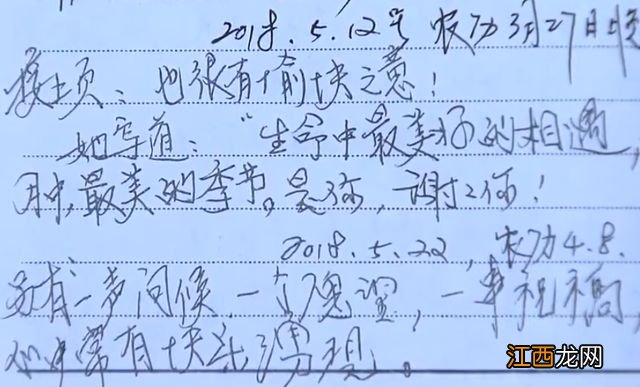 2018.5.12号 农历3月27日晚
接上页：也很有愉快之意！
她写道：“生命中最美好的相遇，
月中，最美的季节。是你，谢谢你！
2018.5.22，农历4.8.
另有一声问候，一个愿望，一串祝福，
心中常有快乐涌现。
江西龙网